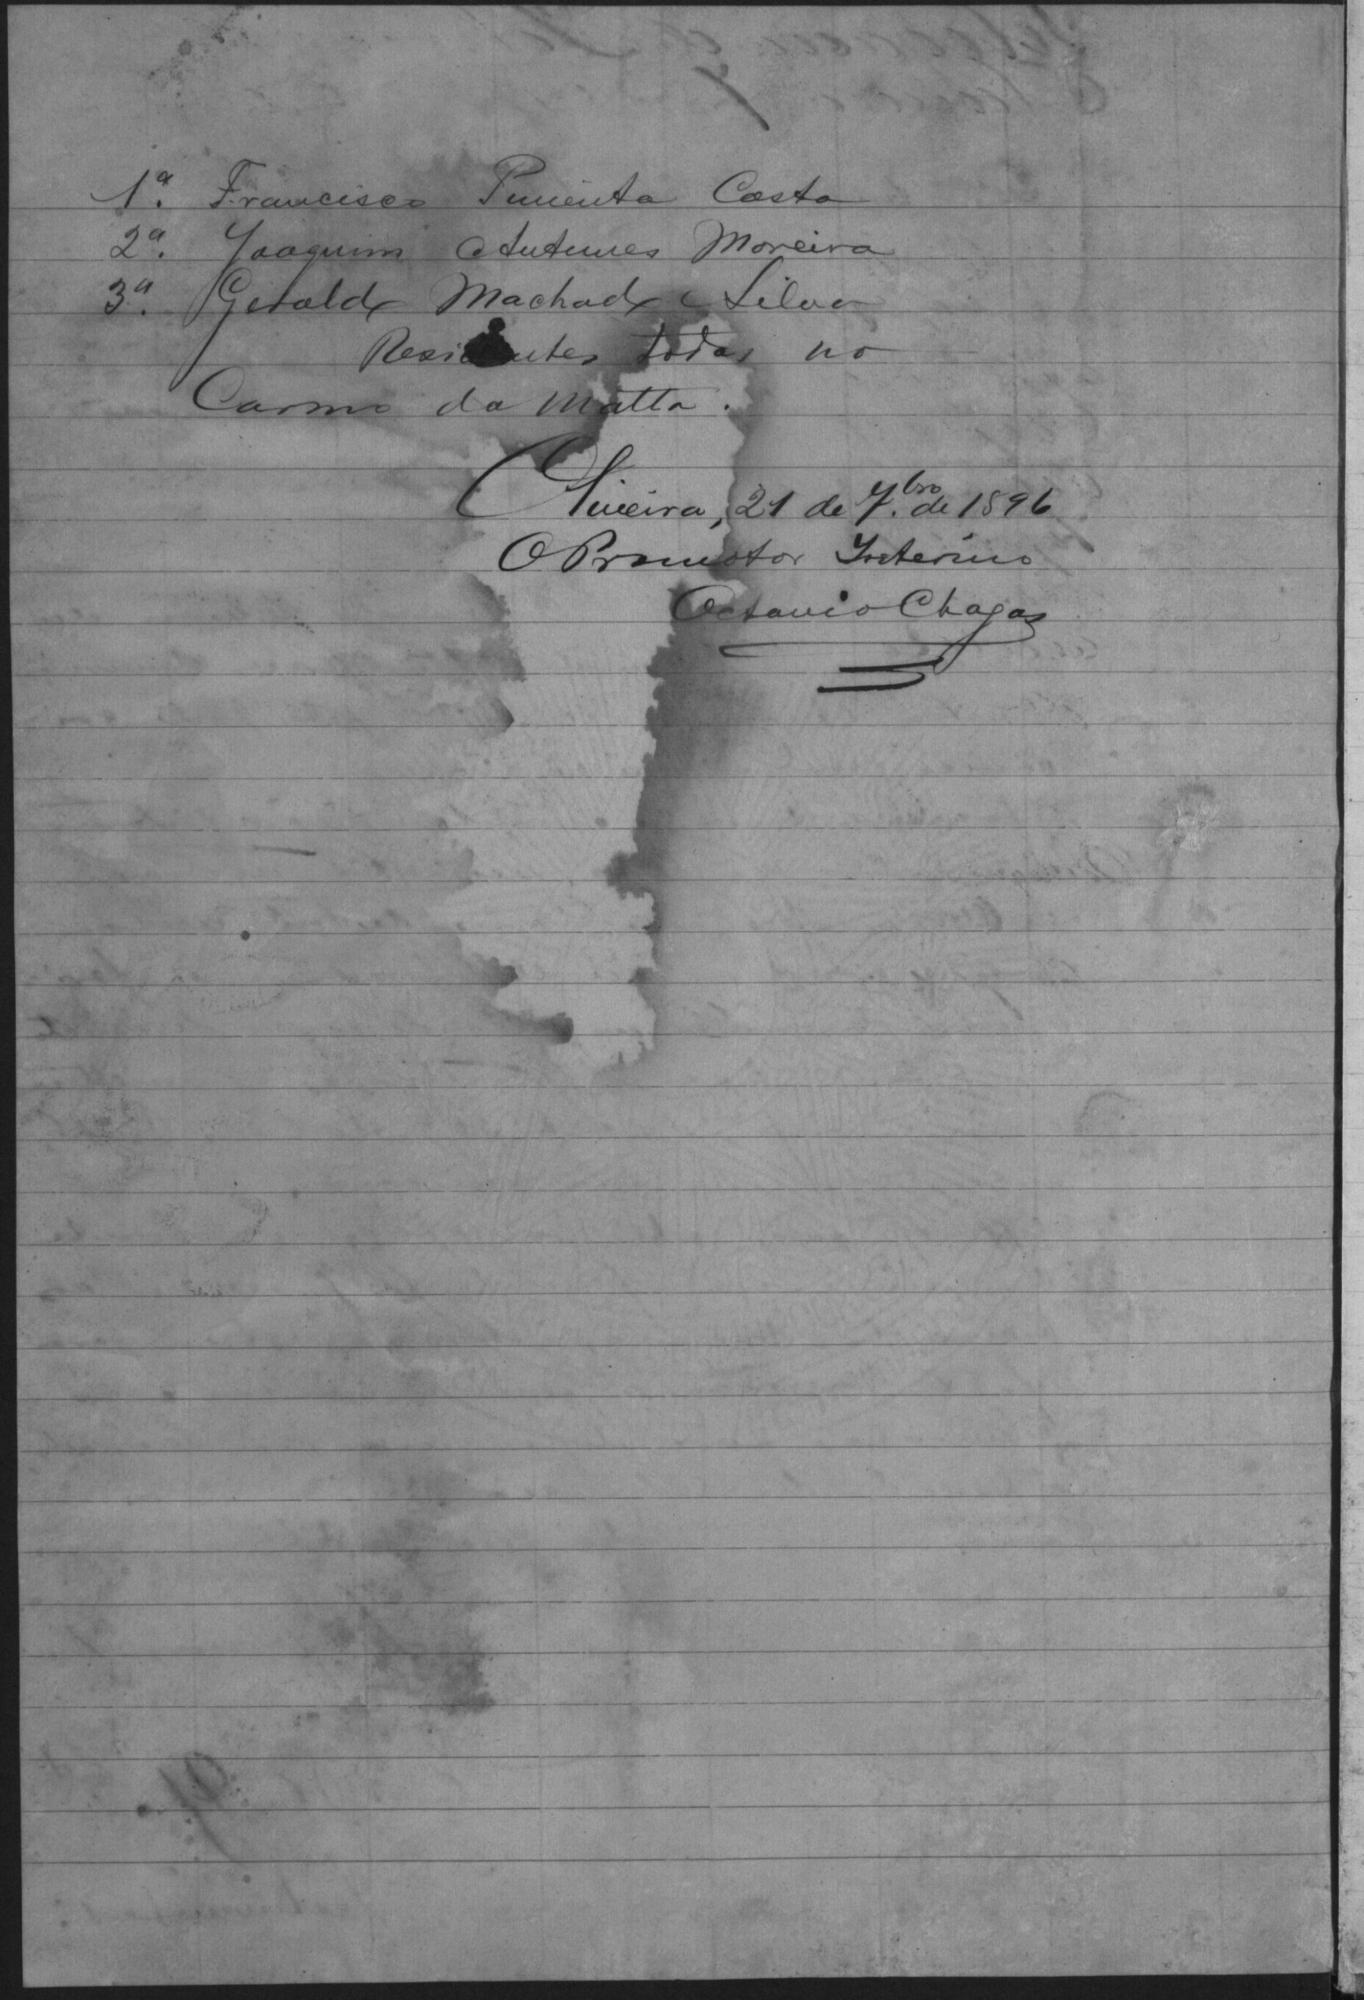 1ª. Francisco Pimenta Costa
2ª. Joaquim Antunes Moreira
3ª. Geraldo Machado Silva
Residentes todas no
Carmo da Matta.
Oliveira, 21 de 7.bro de 1896
O Promotor Interino
Octavio Chagas